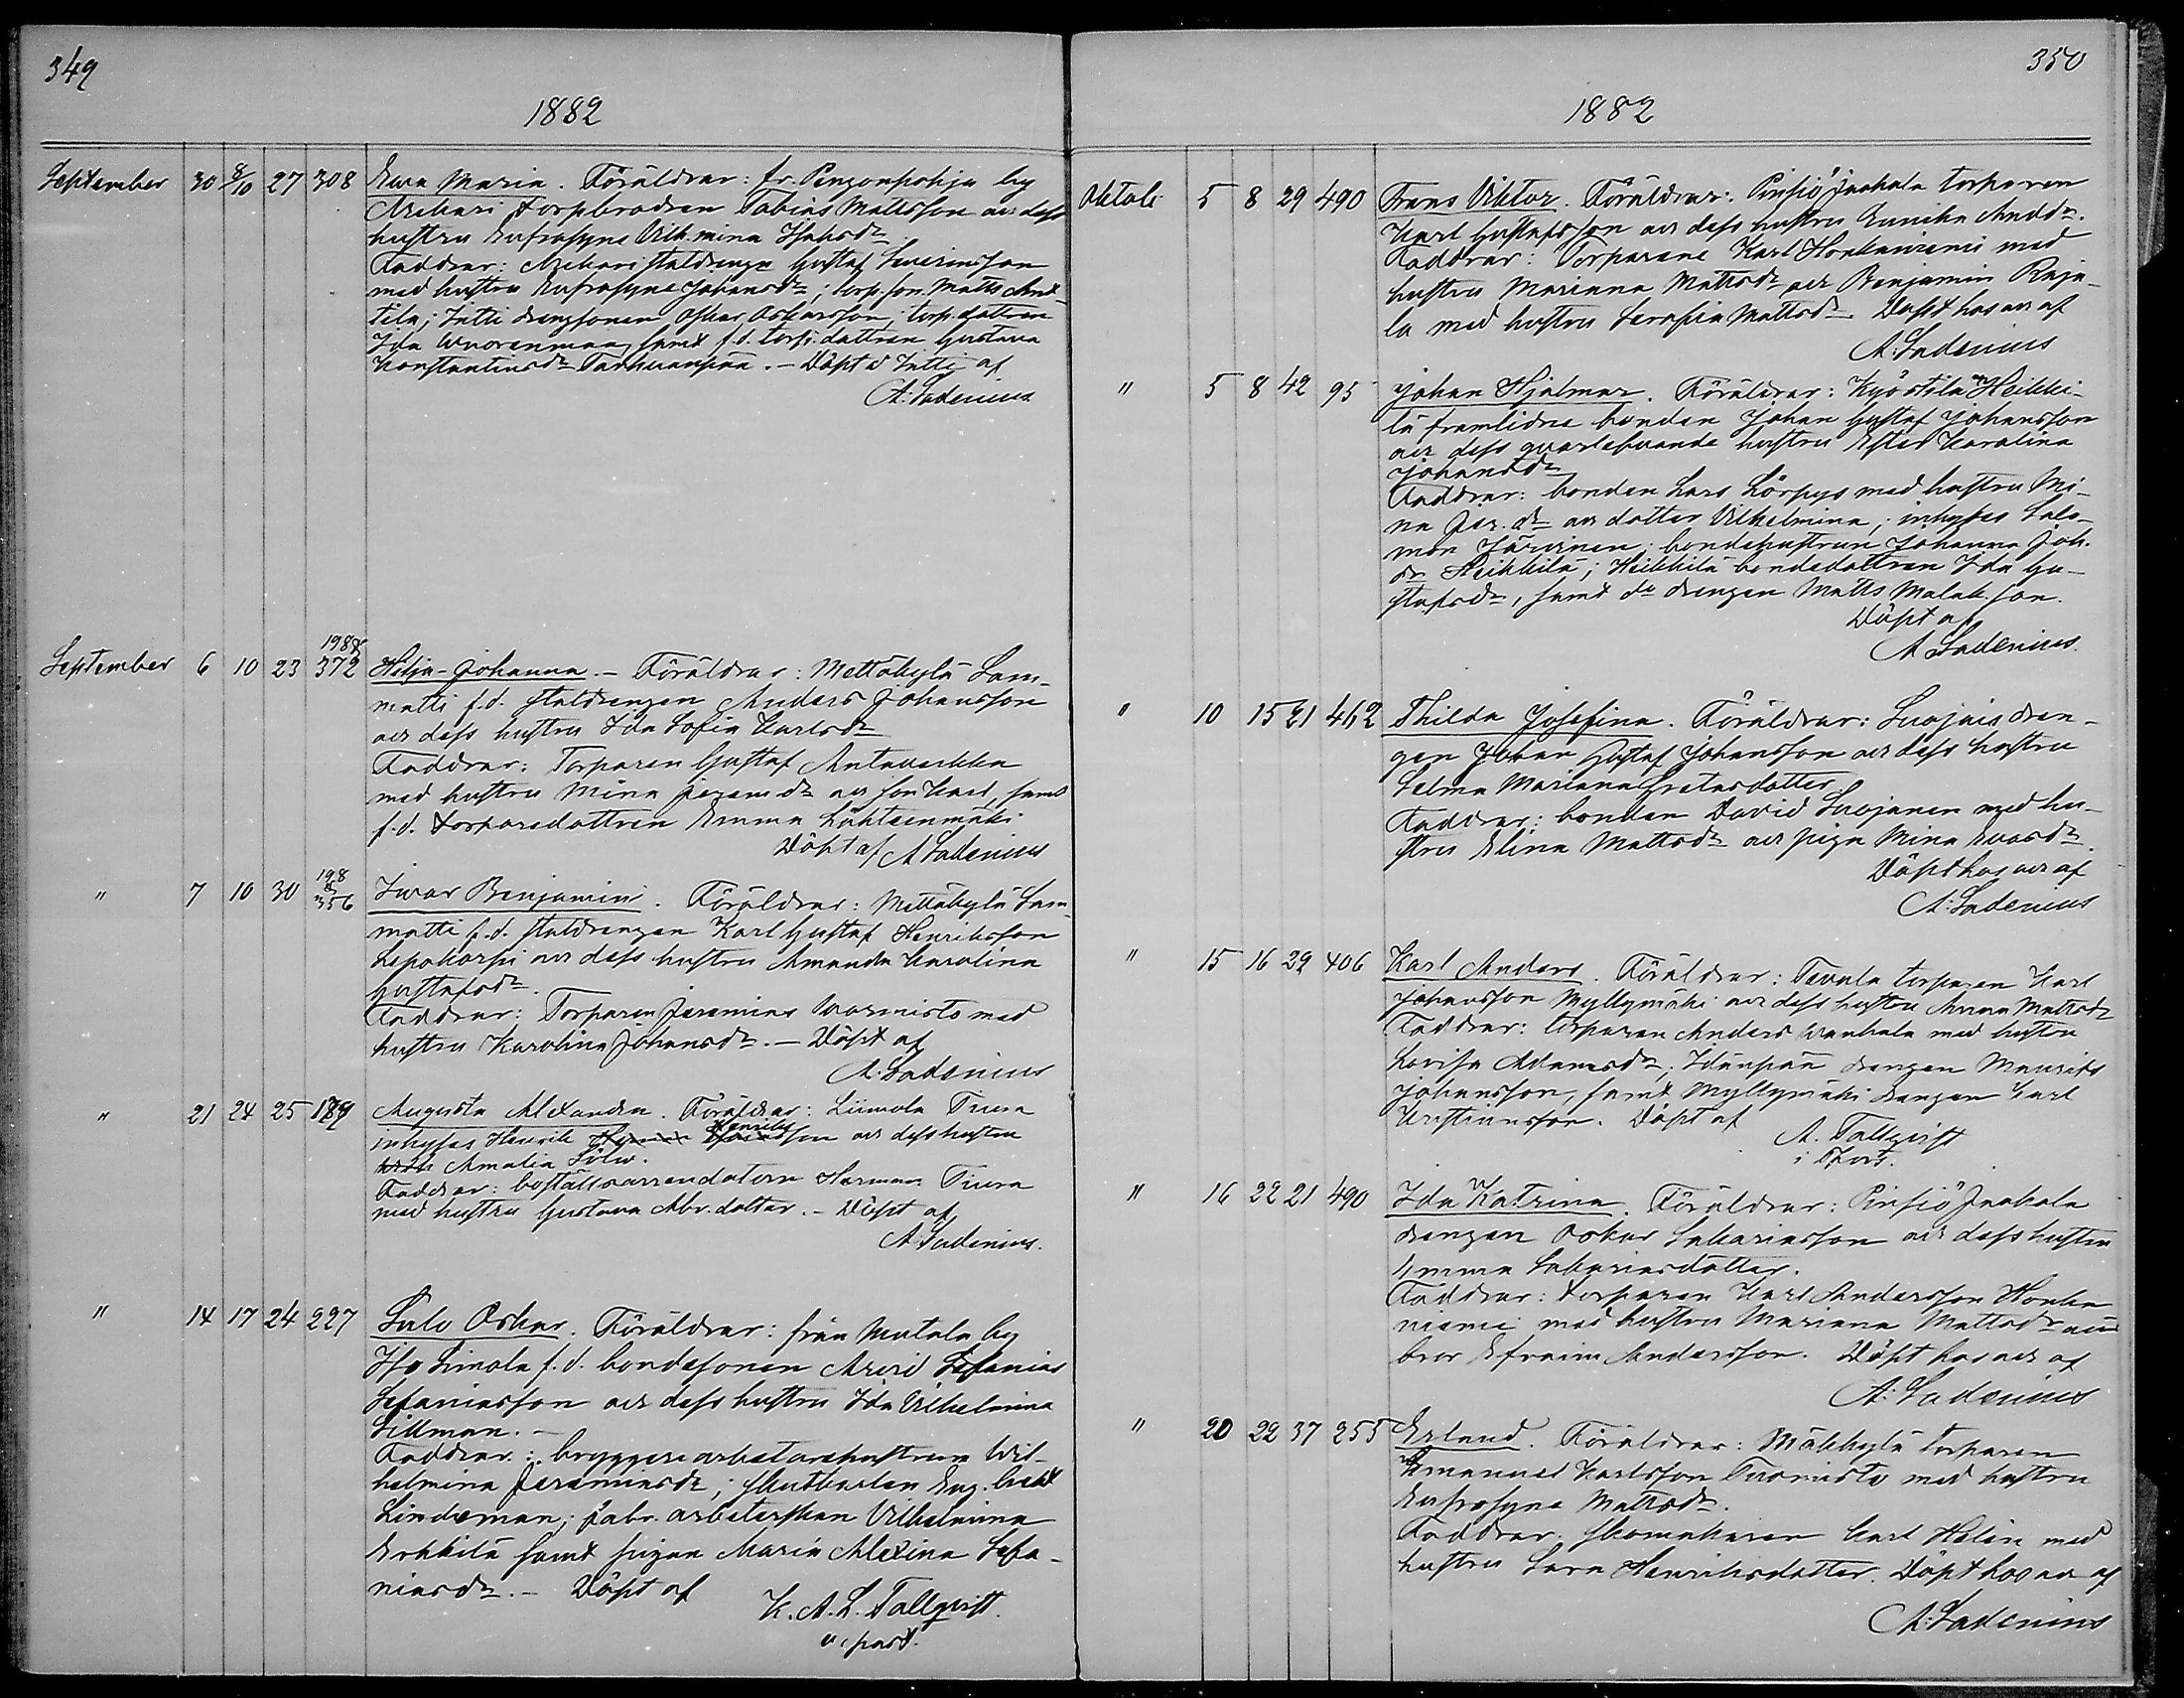 349
1882
September 30 8/10 27 308 Eva Maria. Föräldrar: fr. Pengonpohja by
Torpbrodren Tobias Mattsson och dess
hustru Eufrosyne Vilh.mina Isaksdr
Faddrar: staldrenge Gustaf Severinsson
med hustru Eufrosyne Johansdr; torp.son. Matts Ant-
tila; Intti drengsonen Oskar Oskarsson; torp.dottren
Ida Wuorenmaa, samt f.d. torp.dottren Gustava
Konstantinsdr Tarhuanpää. – Döpt i Intti af
A. Ladenius
September 6 10 23 198 & 372 Hilja-Johanna. – Föräldrar: Mettäkylä Sam-
matti f.d. staldrengen Anders Johansson
och dess hustru Ida Sofia Karlsdr
Faddrar: Torparen Gustaf Antaverkka
med hustru Mina Jeremdr och son Karl, samt
f.d. torparedottren Emma Lähteenmäki
Döpt af A Ladenius
" 7 10 30 198 & 356 Ivar Benjamin. Föräldrar: Mettäkylä Sam-
matti f.d. staldrengen Karl Gustaf Henriksson
Lepokorpi och dess hustru Amanda Karolina
Gustafsdr.
Faddrar: Torparen Jeremias Wuormisto med
hustru Karolina Johansdr. – Döpt af
A. Ladenius
" 21 24 25 189 Augusta Alexandra. Föräldrar: Liuvola Tiura
inhyses Henrik Henriksson och dess hustru
Amalia Silw.
Faddrar: boställsarrendatorn Herman Tiura
med hustru Gustava Abr.dotter. – Döpt af
A. Ladenius.
" 14 17 24 227 Sulo Oskar. Föräldrar: från Matala by
Iso Simola f.d. bondesonen Arvid Sefanias
Sefaniasson och dess hustru Ida Vilhelmina
Sillman. –
Faddrar: bryggeriarbetarehustrun Wil-
helmina Jeremiasdr; skutkarlen Eng.brekt
Lindeman; fabr. arbeterskan Vilhelmina
Erkkilä samt pigan Maria Alexina Sefa-
niasdr. – Döpt af
K. A. L. Tallqvist.
v. past.
350
1882
Oktob. 5 8 29 490 Frans Viktor. Föräldrar: Pinsiö Jaakala torparen
Karl Gustafsson och dess hustru Eunika Andrdr.
Faddrar: Torparene Karl Honkaniemi med
hustru Marianna Mattsdr och Benjamin Raja-
la med hustru Serafia Mattsdr. Döpt hos oss af
A. Ladenius
" 5 8 42 95 Johan Hjalmar. Föräldrar: Kyöstilä Heikki-
lä framlidne bonden Johan Gustaf Johansson
och dess qvarlefvande hustru Ester Karolina
Johansdr
Faddrar: bonden Lars Lörpys med hustru Mi-
na Jer.dr och dotter Vilhelmina; inhyses Salo-
mon Järvinen; bondehustrun Johanna Joh.
dr Heikkilä; Heikkilä bondedottren Ida Gu-
stafsdr, samt do drengen Matts Malak.son.
Döpt af
A Ladenius.
" 10 15 21 462 Thilda Josefina. Föräldrar: Suojais dren-
gen Johan Gustaf Johansson och dess hustru
Selma Mariana Gretasdotter
Faddrar: bonden David Suojanen med hu-
stru Elina Mattsdr och piga Mina Evasdr.
Döpt hos oss af
A. Ladenius
" 15 16 29 406 Karl Anders. Föräldrar: Tevala torparen Karl
Johansson Myllymäki och dess hustru Anna Mattsdr
Faddrar: torparen Anders Wanhala med hustru
Lovisa Adamsdr; Idänpää drengen Maurits
Johansson, samt Myllymäki drengen Karl
Kristiansson. Döpt af
A. Tallqvist
" 16 22 21 490 Ida Katrina. Föräldrar: Pinsiö Jaakala
drengen Oskar Sakariasson och dess hustru
Emma Sakariasdotter.
Faddrar: Torparen Karl Andersson Honka-
niemi med hustru Mariana Mattsdr och
bror Efraim Andersson. Döpt hos oss af
A. Ladenius
" 20 22 37 255 Erland. Föräldrar: Mäkkylä torparen
Emanuel Karlsson Tuomisto med hustru
Eufrosyne Mattsdr.
Faddrar: skomakaren Karl Helin med
hustru Sara Henriksdotter. Döpt hos oss af
A. Ladenius